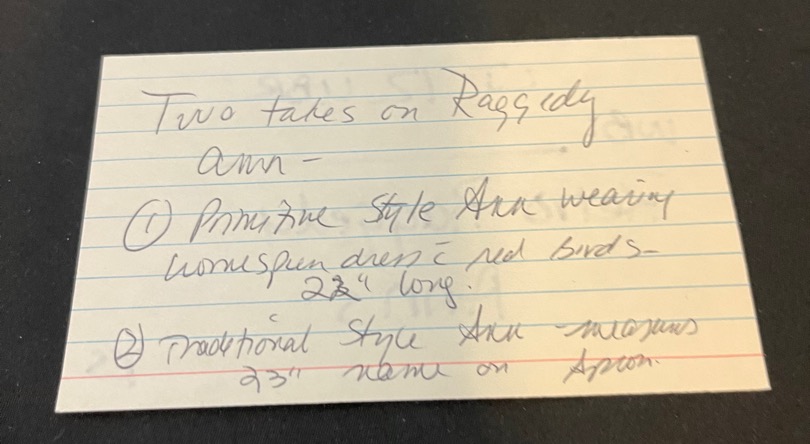 Two takes on Raggedy
Ann -
① Primitive Style Ann wearing
homespun dress c̄ red birds -
long.
② Traditional Style Ann - measures
23" name on Apron.